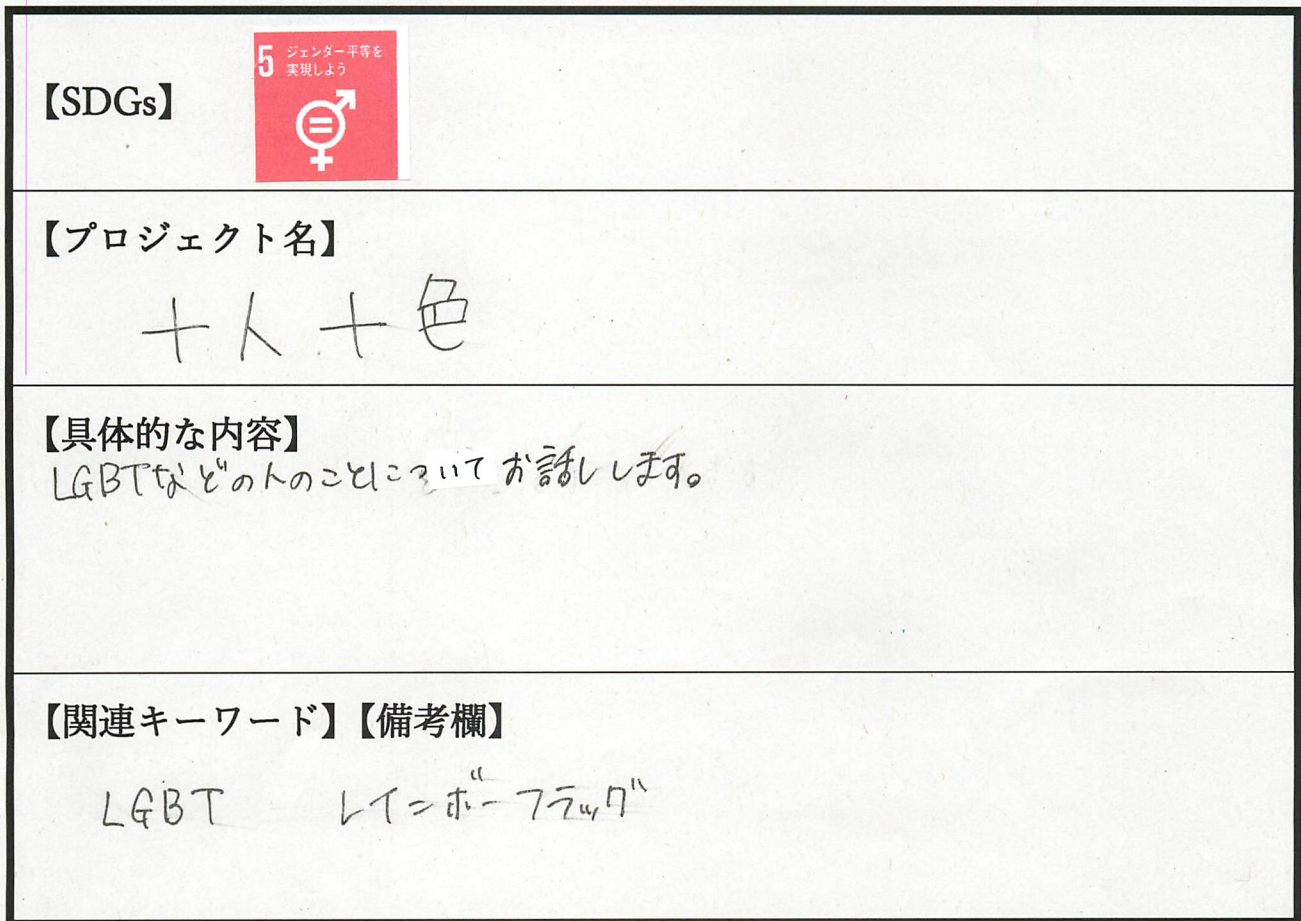 【SDGs】
5 ジェンダー平等を
実現しよう
【プロジェクト名】
十人十色
【具体的な内容】
LGBTなどの人のことについてお話しします。
【関連キーワード】【備考欄】
LGBT レインボーフラッグ